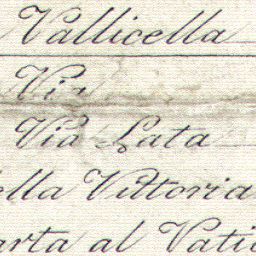 Vallicella
Via
Via Lata
ella Vittoria
arta al Vati